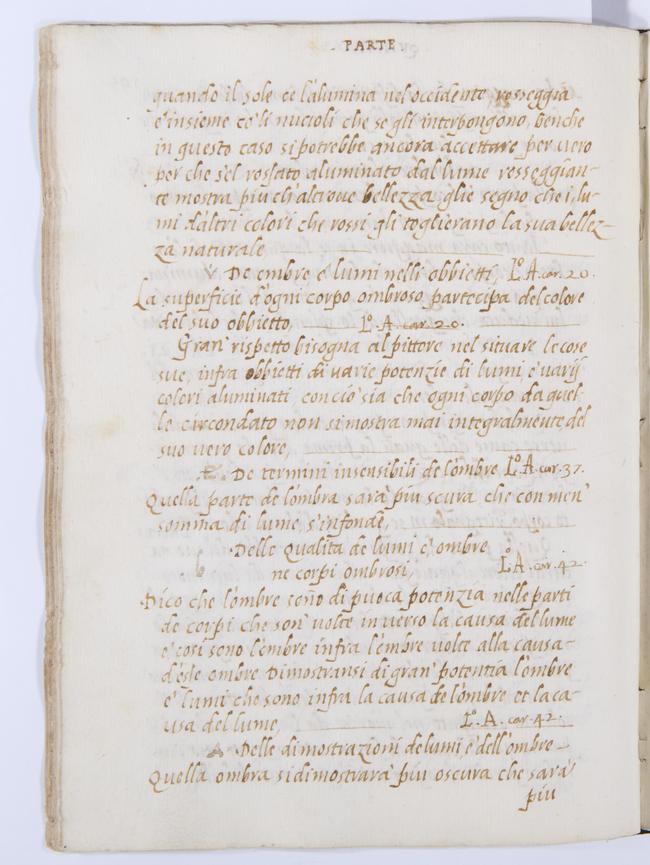 . PARTE .
quando il sole ce l'alumina nel occidente, rosseggia
e' insieme cō li nuvoli che se gli interpongono, benche
in questo caso si potrebbe ancora accettare per vero
per che s'el rossato aluminato dal lume rosseggian-
te mostra piu ch'altroue bellezza, glie segno che i lu-
mi d'altri colori che rossi gli toglierano la sua bellez-
za naturale,
De ombre, e' lumi nelli obbietti, Lo. A. car. 20.
La superficie d'ogni corpo ombroso partecipa del colore
del suo obbietto, Lo. A. car. 20.
Gran' rispetto bisogna al pittore nel situare le cose
sue, infra obbietti di uarie potenzie di lumi, e' uarij
colori aluminati, conciò sia che ogni corpo da quel-
le circondato non si mostra mai integralmente del
suo uero colore,
De termini insensibili de l'ombre Lo. A. car. 37.
Quella parte de l'ombra sarà piu scura che con men'
somma di lume s'infonde,
Delle qualita de lumi e' ombre
b ne corpi ombrosi, Lo. A. car. 42.
Dico che l'ombre sono di puoca potenzia nelle parti
de corpi che son' uolte in uerso la causa del lume
e' cosi sono l'ombre infra l'ombre uolte alla causa
d'esse ombre Dimostransi di gran' potentia l'ombre
e' lumi che sono infra la causa de l'ombre et la ca-
usa del lume, Lo. A. car. 42.
A Delle dimostrazioni de lumi, e' dell'ombre
Quella ombra si dimostrarà piu oscura che sarà
piu